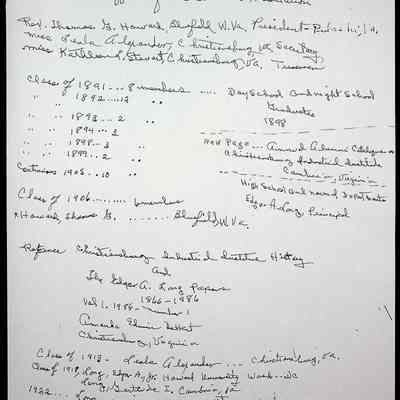 Rev. Thomas G. Howard, Bluefield W. Va. President
Miss Leala Alexander, Christiansburg, Va. Secretary
Miss Kathleen L. Stewart, Christiansburg, Va.
Class of 1891 ... 8 members ..... Day School and night School
" " 1892 ... 12 " " Graduates
" " 1893 ... 2 " " 1898
" " 1894 ... 3
" " 1898 ... 3 New Page ... Annual Alumni Catalogue
" " 1899 ... 2 " Christiansburg Industrial Institute
1905 .. 10 " Cambria, Virginia
High School and normal Departments
Class of 1906 ......... 6 members Edgar A. Long, Principal
x Howard, Thomas G. ....... Bluefield, W. Va.
Reference Christiansburg Industrial Institute History
and
The Edgar A. Long Papers
1866-1986
Vol 1. 1988 - number 1
Amanda Elvin
Christiansburg, Virginia
Class of 1913 - Leala Alexander ... Christiansburg, Va.
Class of 1918, Long, Edgar A., Jr. Howard University Wash - DC
Long, Gertrude I. Cambria, Va
1922 ... Long